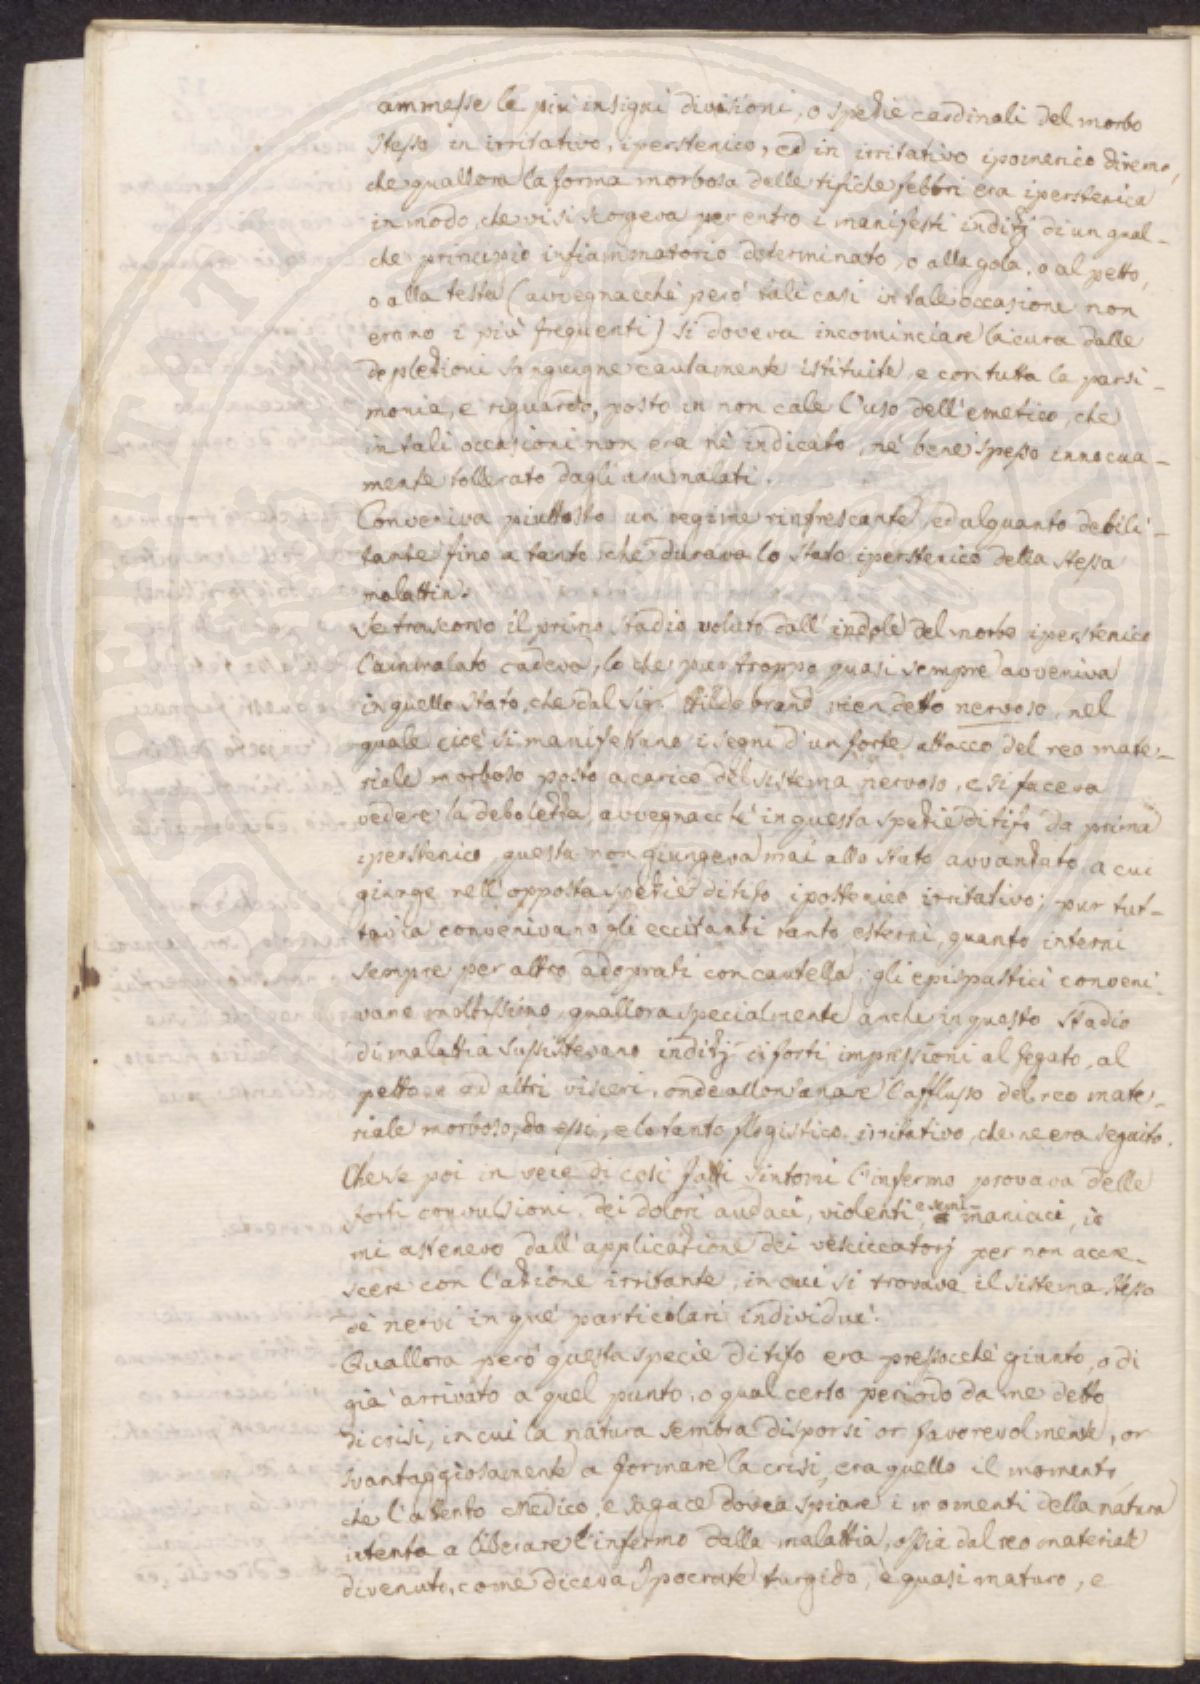 ammesse le più insigni divisioni, o spezie cardinali del morbo
stesso in irritativo, iperstenico, ed in irritativo ipostenico diremo,
che quallora la forma morbosa delle tifiche febbri era iperstenica
in modo, che vi si scorgeva per entro i manifesti indizj di un qual-
che principio infiammatorio determinato, o alla gola, o al petto,
o alla testa (avvegnacchè però tali casi in tale occasione non
erano i più frequenti) si doveva incominciare la cura dalle
deplezioni sanguigne cautamente istituite, e con tutta la parsi-
monia, e riguardo, posto in non cale l'uso dell'emetico, che
in tali occasioni non era nè indicato, nè bene spesso innocua-
mente tollerato dagli ammalati.
Conveniva piuttosto un regime rinfrescante, ed alquanto debili-
tante fino a tanto che durava lo stato iperstenico della stessa
malattia.
Se trascorso il primo stadio voluto dall'indole del morbo iperstenico
l'ammalato cadeva, lo che pur troppo quasi sempre avveniva
in quello stato, che dal Sigr. Hildebrand vien detto nervoso, nel
quale cioè si manifestano i segni d'un forte attacco del reo mate-
riale morboso posto a carico del sistema nervoso, e si faceva
vedere la debolezza, avvegnacchè in questa spezie di tifo da prima
iperstenico, questa non giungeva mai allo stato avvanzato, a cui
giunge nell'opposta spezie di tifo ipostenico irritativo; pur tut-
tavia convenivano gli eccitanti tanto esterni, quanto interni
sempre per altro adoprati con cautella; gli epispastici conveni-
vano moltissimo, quallora specialmente anche in questo stadio
di malattia sussistevano indizj di forti impressioni al fegato, al
petto, e ad altri visceri, onde allontanare l'afflusso del reo mate-
riale morboso, da essi, e lo tanto flogistico irritativo, che ne era seguito.
Che se poi in vece di così fatti sintomi l'infermo provava delle
forti convulsioni, dei dolori audaci, violenti, e semi-maniaci, io
mi astenevo dall'applicazione dei vesciccatorj per non accre-
scere con l'azione irritante, in cui si trovava il sistema stesso
de' nervi in que' particolari individui.
Quallora però questa specie di tifo era pressocchè giunto, o di
già arrivato a quel punto, o qual certo periodo da me detto
di crisi, in cui la natura sembra disporsi or favorevolmente, or
svantaggiosamente a formare la crisi, era quello il momento
che l'attento Medico, e sagace dovea spiare i momenti della natura
intenta a liberare l'infermo dalla malattia, ossia dal reo materiale
divenuto, come diceva Ipocrate turgido, è quasi maturo, e